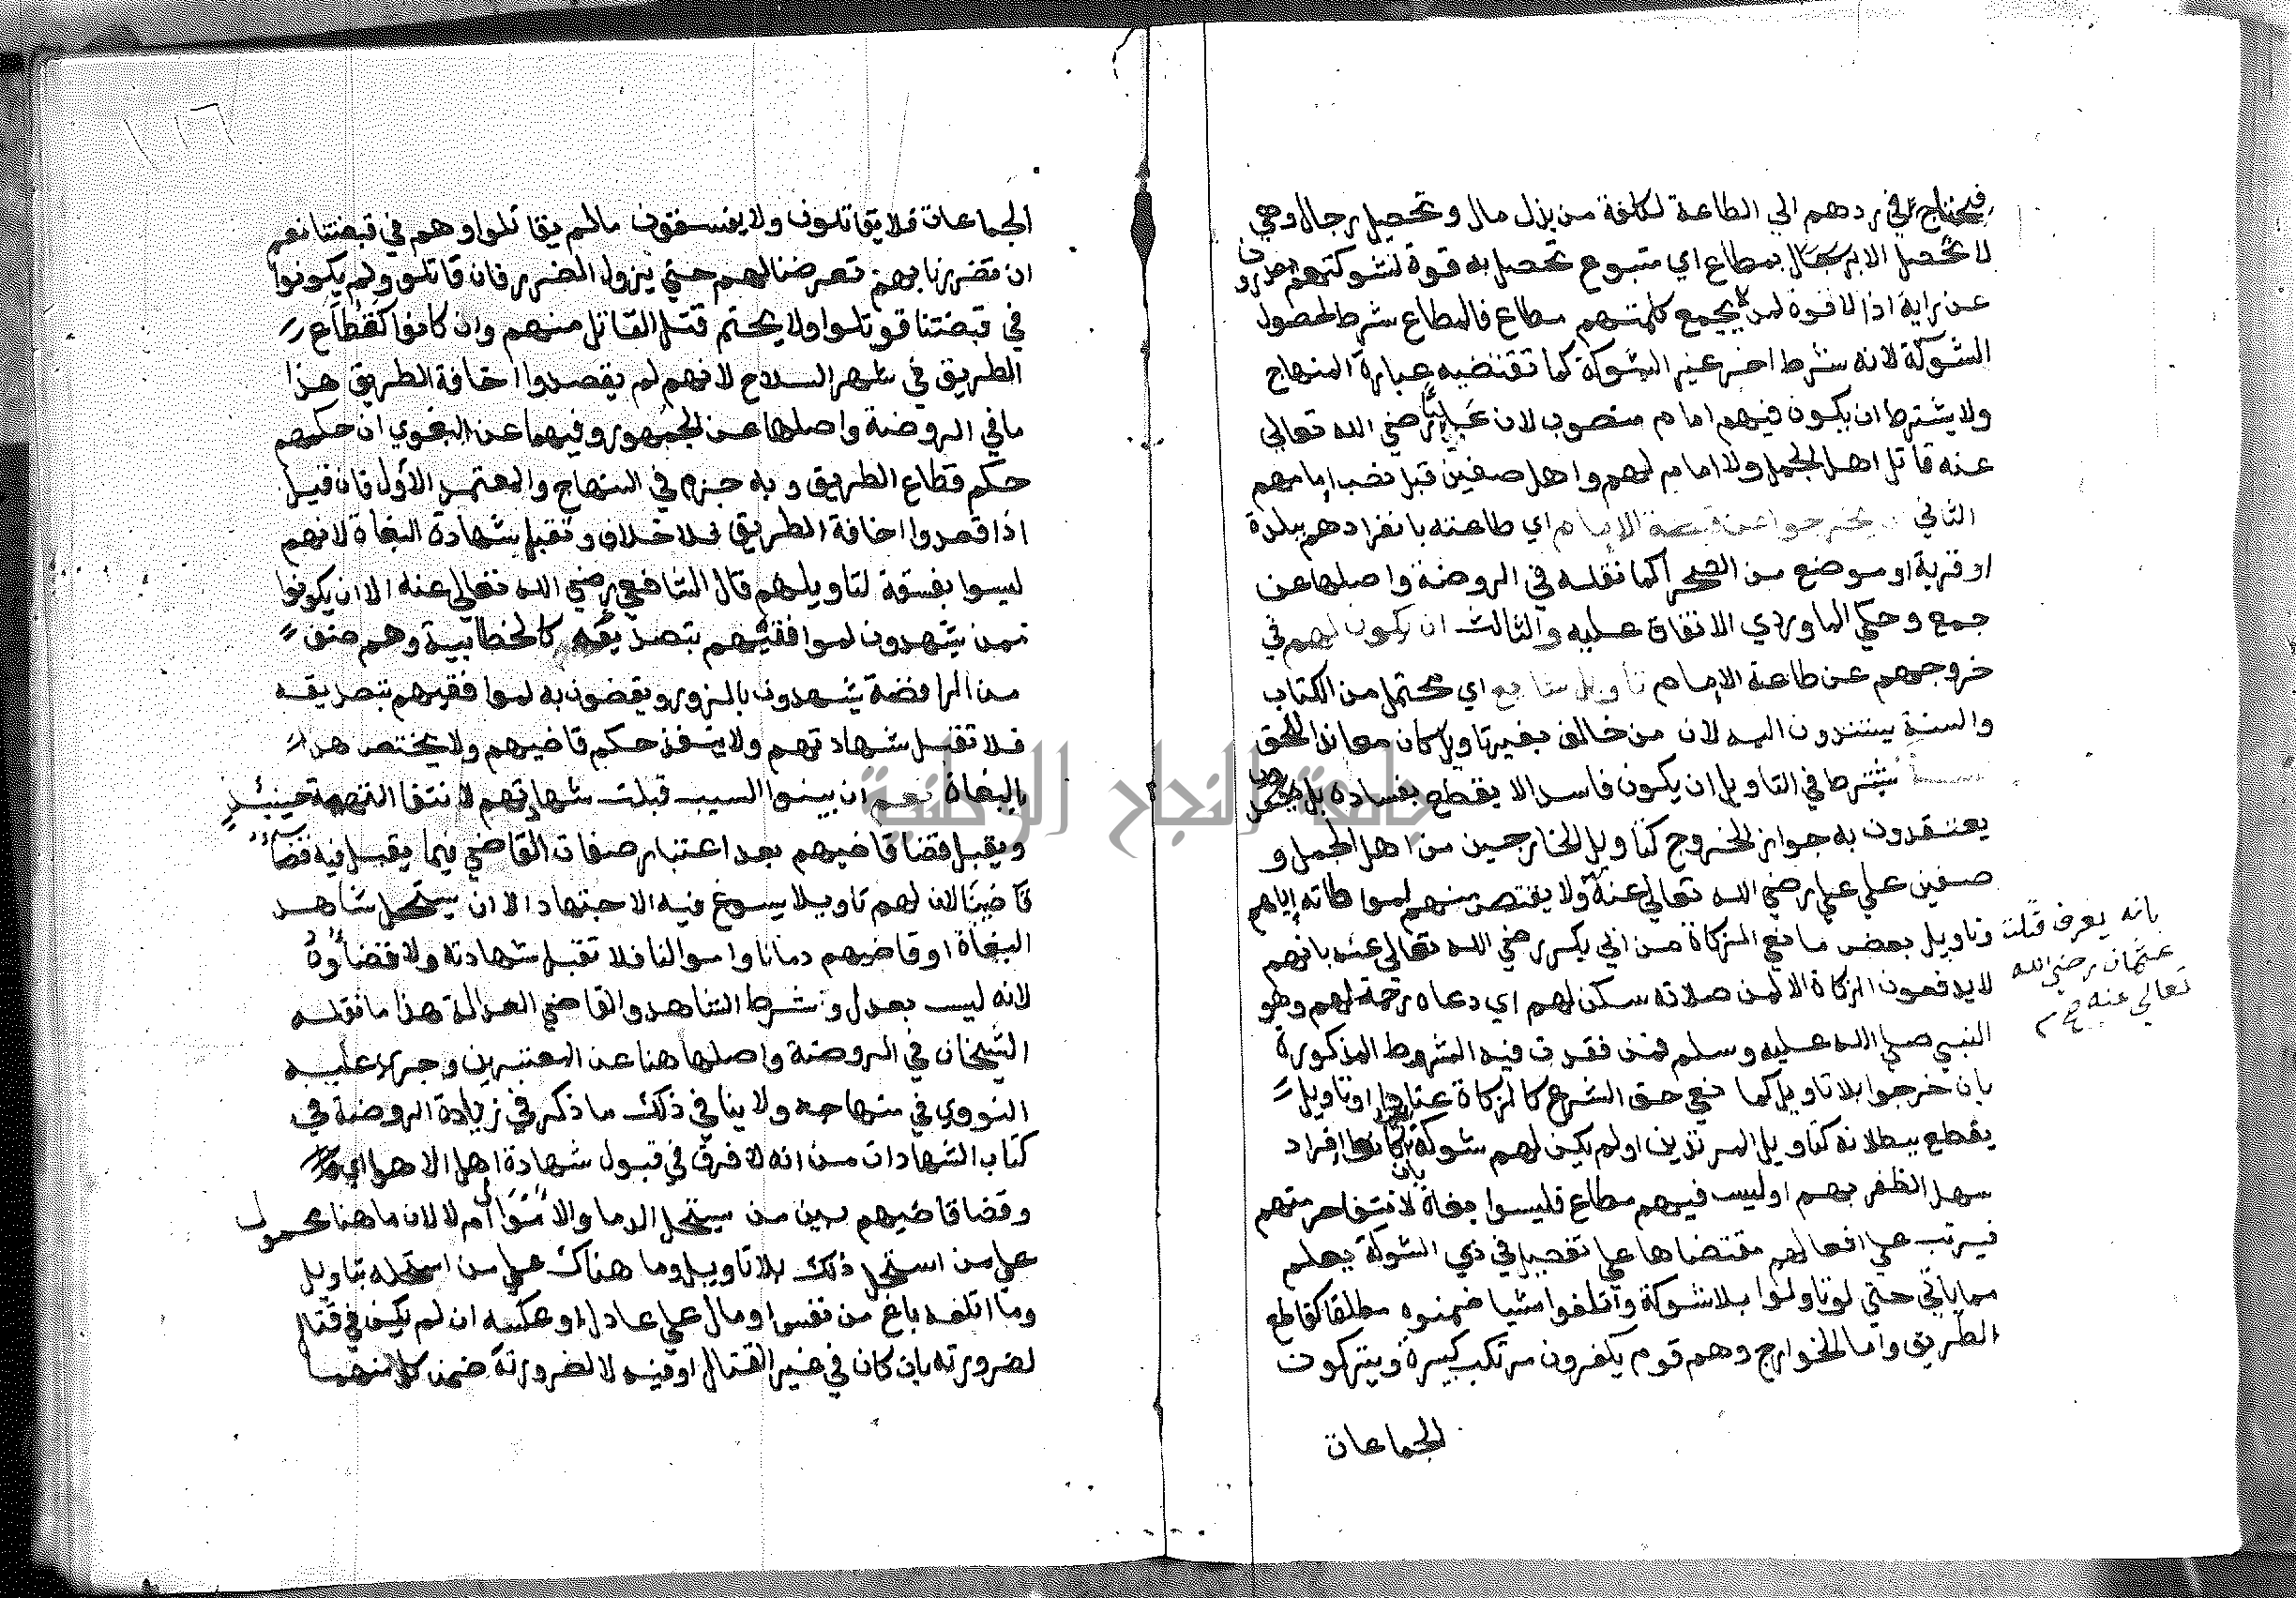 فيحتاج في ردهم الي الطاعة لكلفة من بذل مال وتحصيل رجال وهي
لا تحصل الا بمطاع اي متبوع تحصل به قوة لشوكتهم يصدرون
عن رايه اذ لا قوة لمن لا يجمع كلمتهم مطاع فالمطاع شرط لحصول
الشوكة لا انه شرط اخر غير الشوكة كما تقتضيه عبارة المنهاج
ولا يشترط ان يكون فيهم امام منصوب لان عليا رضي الله تعالي
عنه قاتل اهل الجمل ولا امام لهم واهل صفين قبل نصب امامهم
الثاني يخرجوا عن قبضة الامام اي طاعته بانفرادهم ببلدة
او قرية او موضع من الصحرا كما نقله في الروضة واصلها عن
جمع وحكي الماوردي الاتفاق عليه والثالث ان يكون لهم في
خروجهم عن طاعة الامام تاويل سايغ اي محتمل من الكتاب
والسنة يستندون اليه لان من خالف بغير تاويل كان معاندا للحق
يشترط في التاويل ان يكون فاسدا لا يقطع بفساده بل
يعتقدون به جواز الخروج كتاويل الخارجين من اهل الجمل و
صفين علي علي رضي الله تعالي عنه ولا يقتص منهم لمواطاته اياهم
وتاويل بعض مانعي الزكاة من ابي بكر رضي الله تعالي عنه بانهم
لا يدفعون الزكاة الا لمن صلاته سكن لهم اي دعاه رحمة لهم وهو
النبي صلي الله عليه وسلم فمن فقدت فيه الشروط المذكورة
بان خرجوا بلا تاويل كمانعي حق الشرع كالزكاة عنادا او تاويل
يقطع ببطلانه كتاويل المرتدين او لم يكن لهم شوكة بان كانوا افراد
سهل الظفر بهم او ليس فيهم مطاع فليسوا بغاة لانتفا حرمتهم
فيرتب علي افعالهم مقتضاها علي تفصيل في ذي الشوكة يعلم
مما ياتي حتي لو تاولوا بلا شوكة واتلفوا شيا ضمنوه مطلقا كقاطع
الطريق واما الخوارج وهم قوم يكفرون مرتكب كبيرة ويتركون
الجماعات
بانه يعرف قتلة
عثمان رضي الله
تعالي عنه
الجماعات فلا يقاتلون ولا يفسقون مالم يقاتلوا وهم في قبضتنا نعم
ان تضررنا بهم تعرضنا لهم حتي يزول الضرر فان قاتلو ولم يكونوا
في قبضتنا قوتلوا ولا يحتم قتل القاتل منهم وان كانوا كقطاع
الطريق في شهر السلاح لانهم لم يقصدوا اخافة الطريق هذا
ما في الروضة واصلها عن الجمهور وفيهما عن البغوي ان حكمهم
حكم قطاع الطريق وبه جزم في المنهاج والمعتمد الاول فان قيل
اذا قصدوا اخافة الطريق فلا خلاف وتقبل شهادة البغاة لانهم
ليسوا بفسقة لتاويلهم قال الشافعي رضي الله تعالي عنه الا ان يكونوا
ممن يشهدون لموافقيهم بتصديقه كالخطابية وهم صنف
من الرافضة يشهدون بالزور ويقضون به لموافقيهم بتصديقه
فلا تقبل شهادتهم ولا ينفذ حكم قاضيهم ولا يختص هذا
بالبغاة نعم ان بينوا السبب قبلت شهادتهم لانتفا التهمة حينئذ
ويقبل قضا قاضيهم بعد اعتبار صفات القاضي فيما يقبل فيه قضا
قاضينا لان لهم تاويلا يسوغ فيه الاجتهاد الا ان يستحل شاهد
البغاة او قاضيهم دمانا واموالنا فلا تقبل شهادته ولا قضاوه
لانه ليس بعدل وشرط الشاهد والقاضي العدالة هذا ما نقله
الشيخان في الروضة واصلها هنا عن المعتبرين وجري عليه
النووي في منهاجه ولا ينافي ذلك ما ذكر في زيادة الروضة في
كتاب الشهادات من انه لا فرق في قبول شهادة اهل الاهوا
وقضا قاضيهم بين من يستحل الدما والاموال ام لا لان ما هنا محمول
علي من استحل ذلك بلا تاويل وما هناك علي من استحله بتاويل
وما اتلفه باغ من نفس او مال علي عادل او عكسه ان لم يكن في قتال
لضرورته بان كان في غير القتال او فيه لا لضرورته ضمن كلا منهما
جامعة النجاح الوطنية